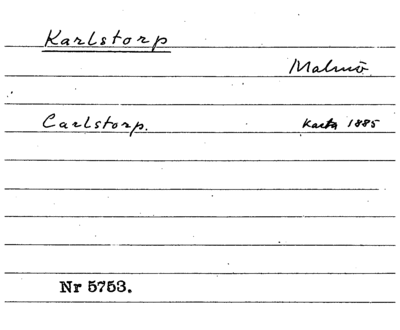 Karlstorp
Malmö
Carlstorp. Karta 1885
Nr 5753.